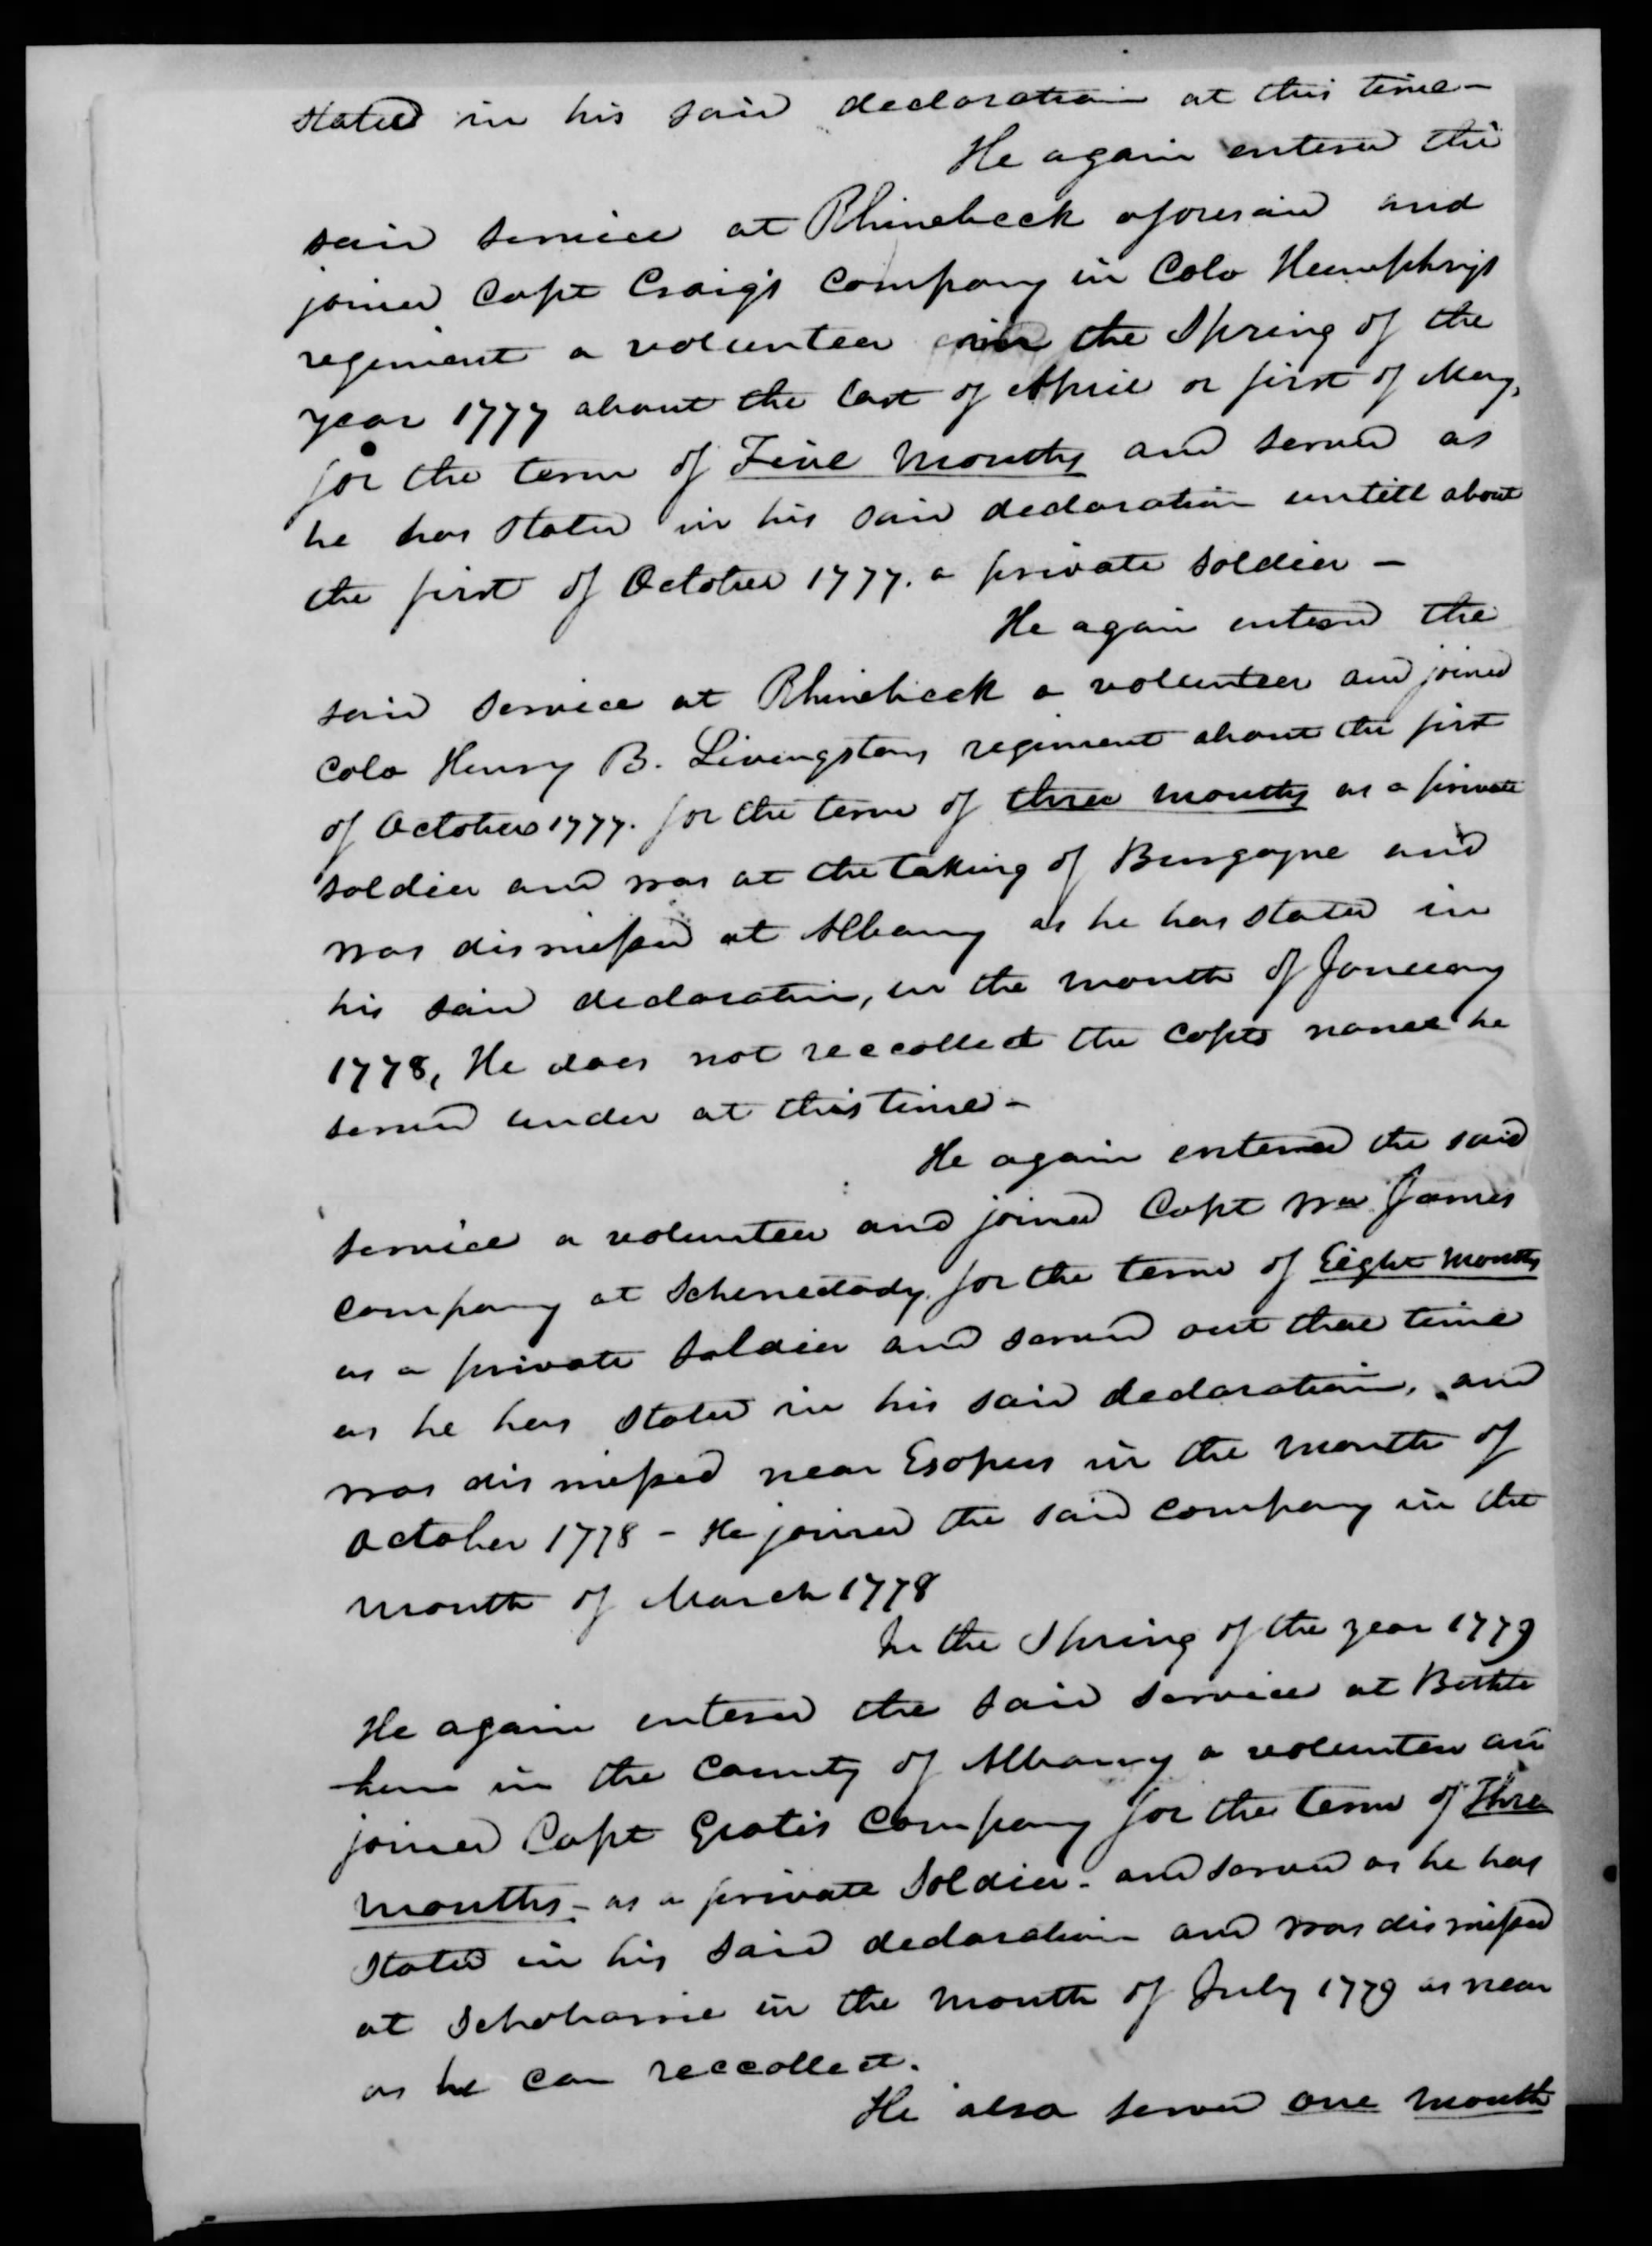 stated in his said declaration at this time –
He again entered the
said service at Rhinebeck aforesaid and
joined Capt Craigs Company in Colo Humphrys
regiment a volunteer in the Spring of the
year 1777 about the last of April or first of May,
for the term of Five Months and served as
he has stated in his said declaration untill about
the first of October 1777. a private soldier –
He again entered the
said service at Rhinebeck a volunteer and joined
Colo Henry B. Livingstons regiment about the first
of October 1777. for the term of three months as a private
soldier and was at the taking of Burgoyne and
was dismissed at Albany as he has stated in
his said declaration, in the month of January
1778, He does not reccollect the Capts name he
served under at this time –
He again entered the said
service a volunteer and joined Capt Wm James
company at Schenectady for the term of Eight Months
as a private soldier and served out that time
as he has stated in his said declaration, and
was dismissed near Esopus in the month of
October 1778 – He joined the said company in the
month of March 1778
In the Spring of the year 1779
He again entered the said service at Bethle
hem in the County of Albany a volunteer and
joined Capt Grotis Company for the term of Three
months – as a private Soldier – and served as he has
stated in his said declaration and was dismissed
at Schoharrie in the month of July 1779 as near
as he can reccollect.
He also served one month